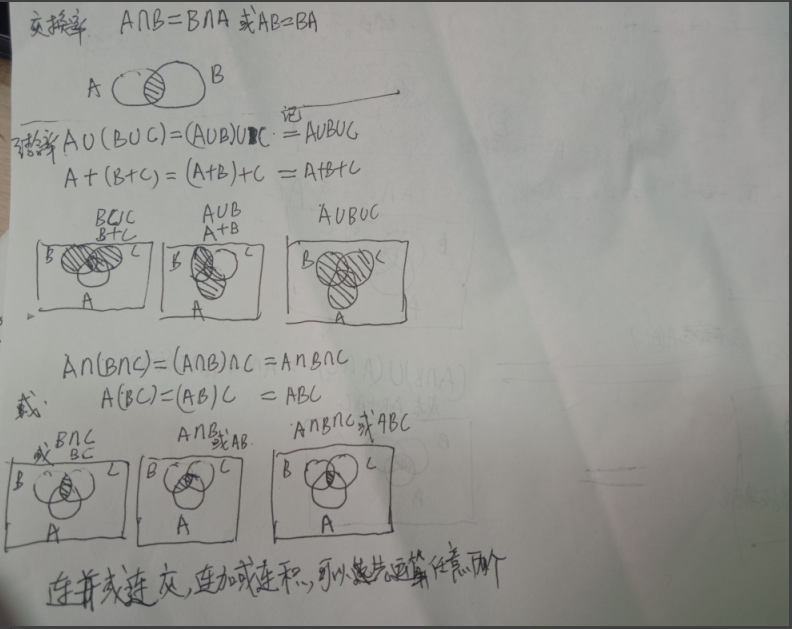 交换率 A∩B=B∩A 或AB=BA
A B
结合率 A∪(B∪C)=(A∪B)∪C 记= A∪B∪C
A+(B+C)=(A+B)+C =A+B+C
B∪C A∪B A∪B∪C
B+C A+B
B C B C B C
A A A
A∩(B∩C)=(A∩B)∩C=A∩B∩C
或. A(BC)=(AB)C =ABC
B∩C A∩B 或AB A∩B∩C 或ABC
或 BC
B C B C B C
A A A
连并或连交,连加或连积,可以先运算任意两个